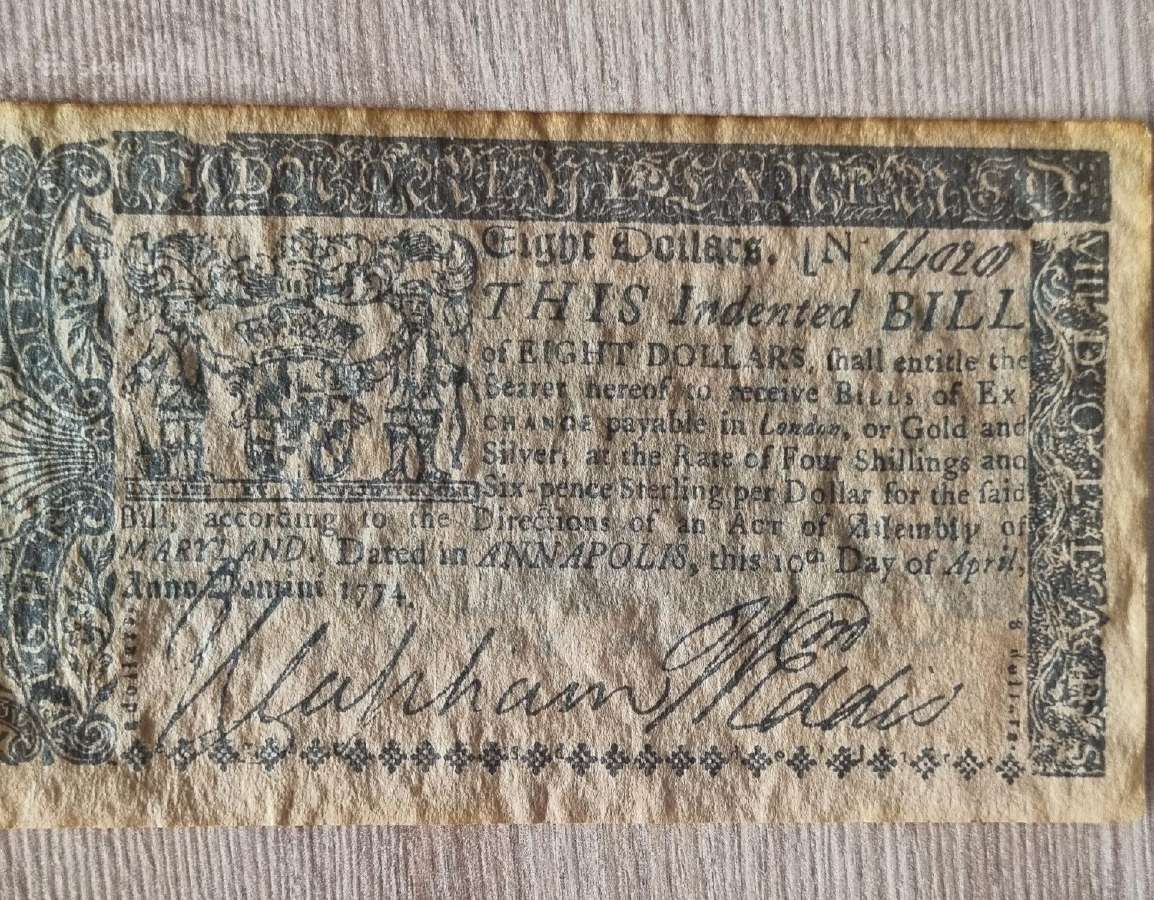 Eight Dollars. [N 14020
THIS Indented BILL
of EIGHT DOLLARS, ſhall entitle the
Bearer hereof to receive BILLS of EX
CHANGE payable in London, or Gold and
Silver, at the Rate of Four Shillings and
Six-pence Sterling per Dollar for the ſaid
Bill, according to the Directions of an ACT of Aſſembly of
MARYLAND. Dated in ANNAPOLIS, this 10th Day of April,
Anno Domini 1774.
Clapham Wm Eddis
8 dollars.
8 dollars.
VIII DOLLARS